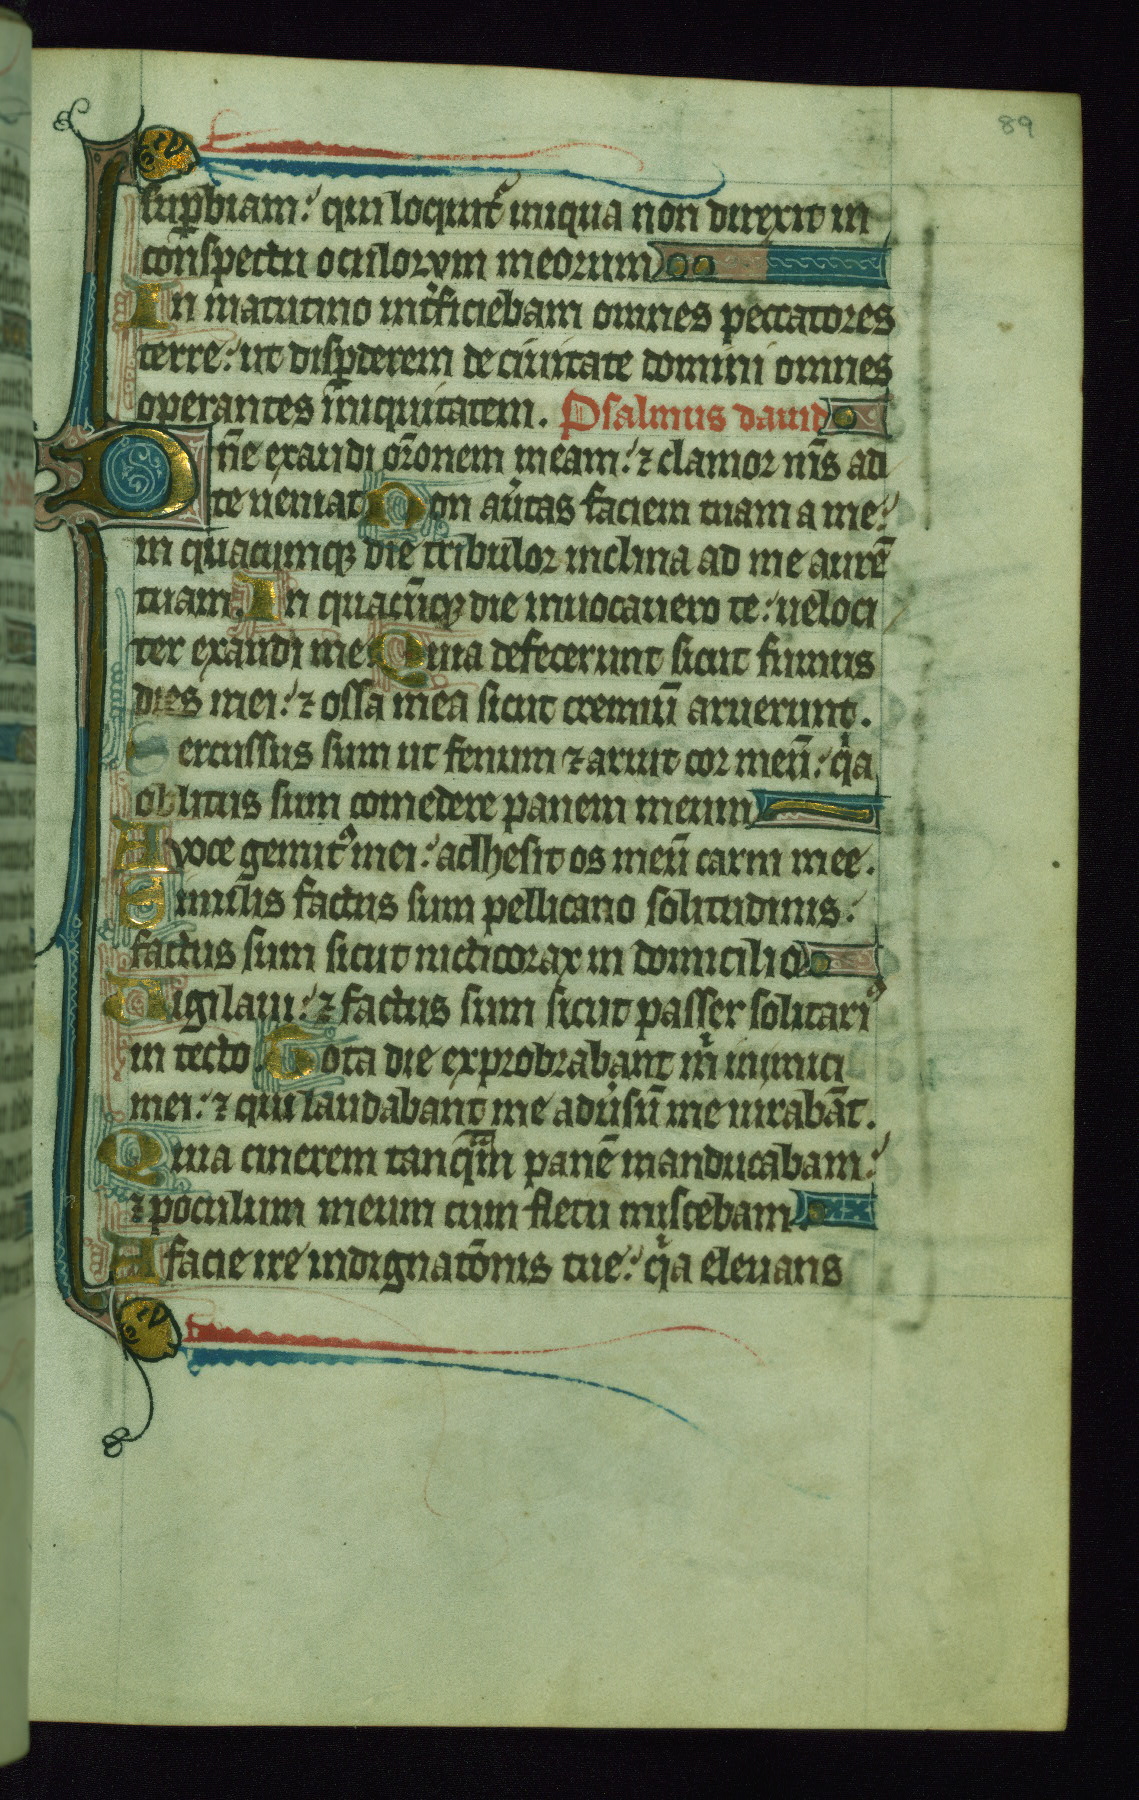 89
sup̱biam: qui loqunt᷑ iniqua non direxit in
conspectu oculorvm meorum
In matutino int̉ficiebam omnes peccatores
terre: ut disp̱derem de ciuitate domini omnes
operantes iniquitatem. Psalmus dauid
Dn̄e exaudi or̄onem meam: ⁊ clamor m̄s ad
te ueniat Non au̾tas faciem tuam a me:
in quacumqꝫ die tribulor inclina ad me aurē
tuam. In quacūqꝫ die inuocauero te: ueloci
ter exaudi me Quia defecerunt sicut fumus
dies mei: ⁊ ossa mea sicut cremiū aruerunt.
Percussus sum ut fenum ⁊ aruit cor meū: qͥa
oblitus sum comedere panem meum
A uoce gemitꝰ mei: adhesit os meū carni mee.
Similis factus sum pellicano solitudinis:
factus sum sicut nicticorax in domicilio
Uigilaui: ⁊ factus sum sicut passer solitariꝰ
in tecto. Tota die exprobrabant mͥ inimici
mei: ⁊ qui laudabant me adu̾sū me iurabāt.
Quia cinerem tanqᷓm panē manducabam:
⁊ poculum meum cum fletu miscebam
A facie ire indignatōnis tue: qͥa eleuans